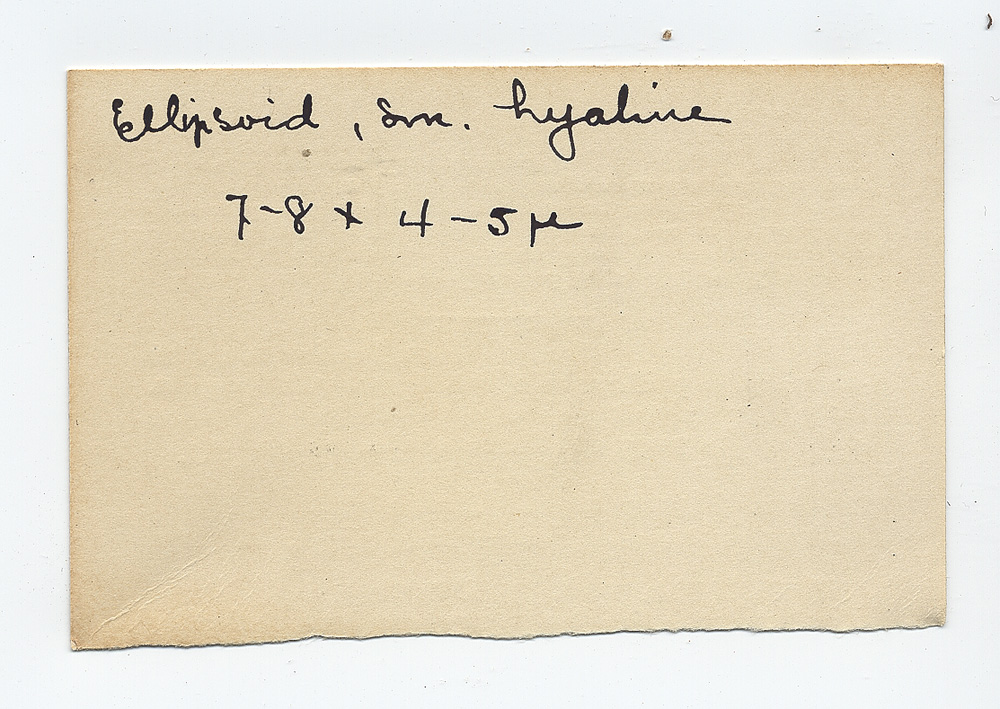 Ellipsoid, sm. hyaline
7-8 x 4-5 µ